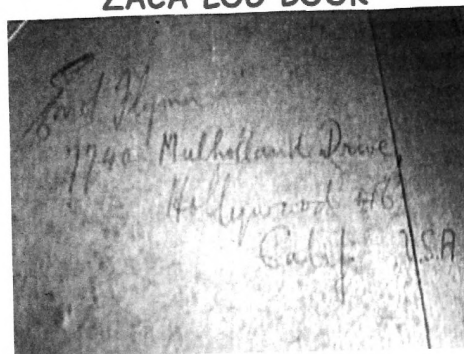 ZACA LOG BOOK
Errol Flynn
7740 Mulholland Drive,
Hollywood 46
Calif. U.S.A